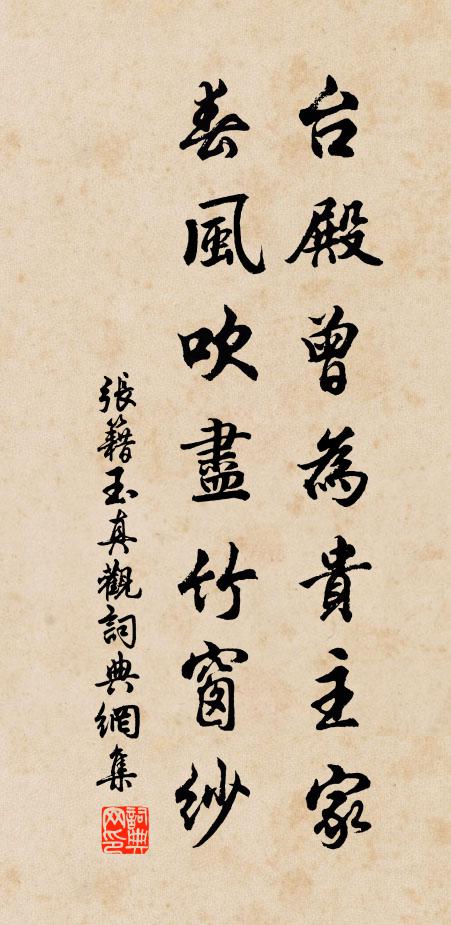 台殿曾為貴主家
春風吹盡竹窗紗
張籍玉真觀詞典網集
詞典网印